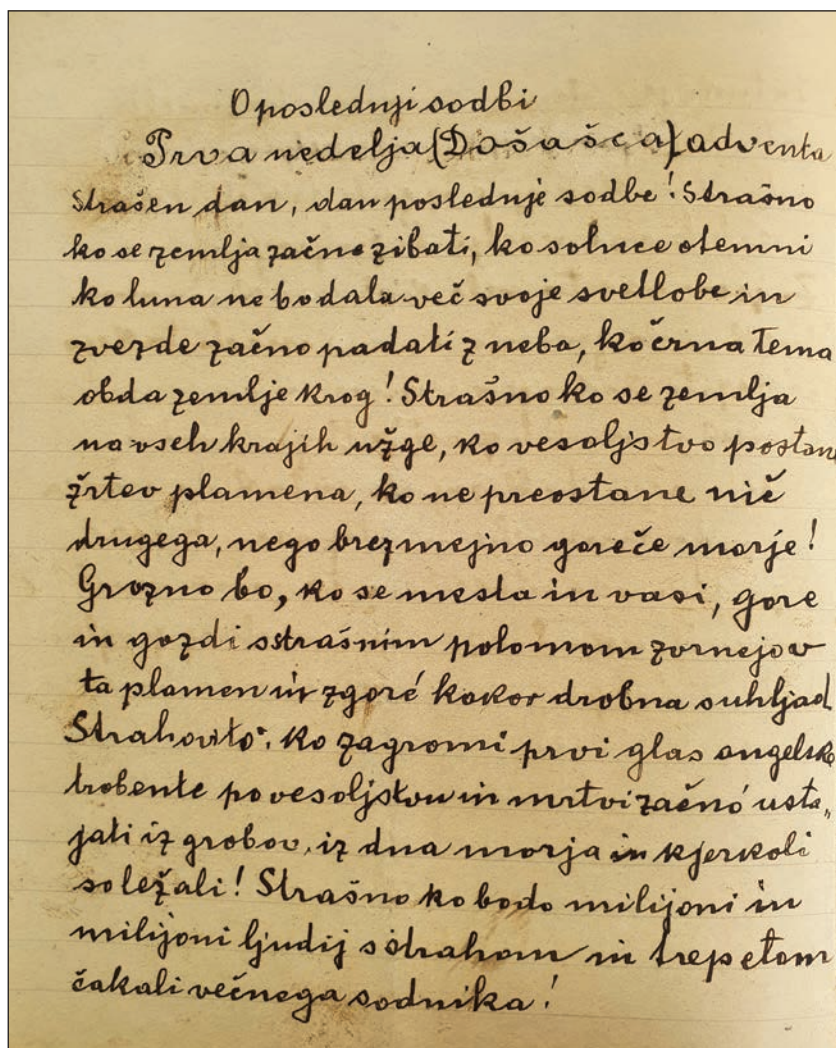 O poslednji sodbi
Prva nedelja (Došašća) adventa
Strašen dan, dan poslednje sodbe! Strašno
ko se zemlja začne zibati, ko solnce otemni
ko luna ne bo dala več svoje svetlobe in
zvezde začno padati z neba, ko črna tema
obda zemlje krog! Strašno ko se zemlja
na vseh krajih užge, ko vesoljstvo postane
žrtev plamena, ko ne preostane nič
drugega, nego brezmejno goreče morje!
Grozno bo, ko se mesta in vasi, gore
in gozdi s strašnim polomom zvrnejo v
ta plamen in zgoré kakor drobna suhljad
Strahovito, ko zagromi prvi glas angelske
trobente po vesoljstvu in mrtvi začnó usta„
jati iz grobov, iz dna morja in kjerkoli
so ležali! Strašno ko bodo milijoni in
milijoni ljudij s strahom in trepetom
čakali večnega sodnika!